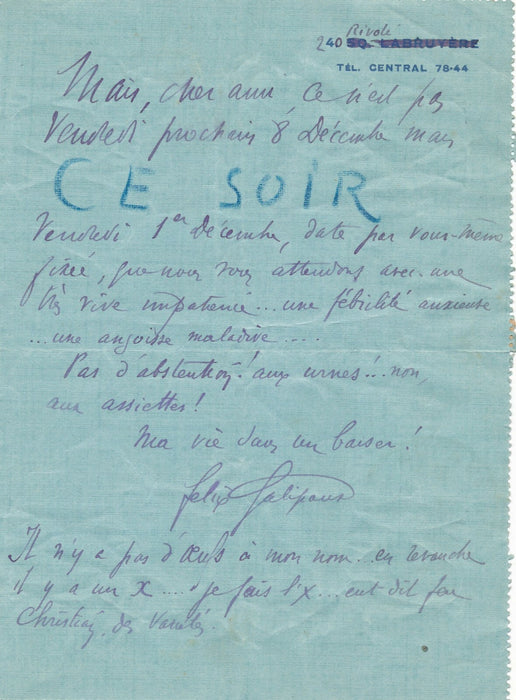 Rivoli
240 SQ. LABRUYÈRE
TÉL. CENTRAL 78-44
Mais, cher ami, ce n'est pas
Vendredi prochain 8 Décembre mais
CE SOIR
Vendredi 1er Décembre, date par vous-même
fixée, que nous vous attendons avec une
très vive impatience... une fébrilité anxieuse
... une angoisse maladive....
Pas d'abstention! aux urnes!.. non,
aux assiettes!
Ma vie dans un baiser!
Felix Galipaux
Il n'y a pas d'œufs à mon nom.. en revanche
il y a un X.... "je fais l'x... eut dit feu
Christian, des Variétés.